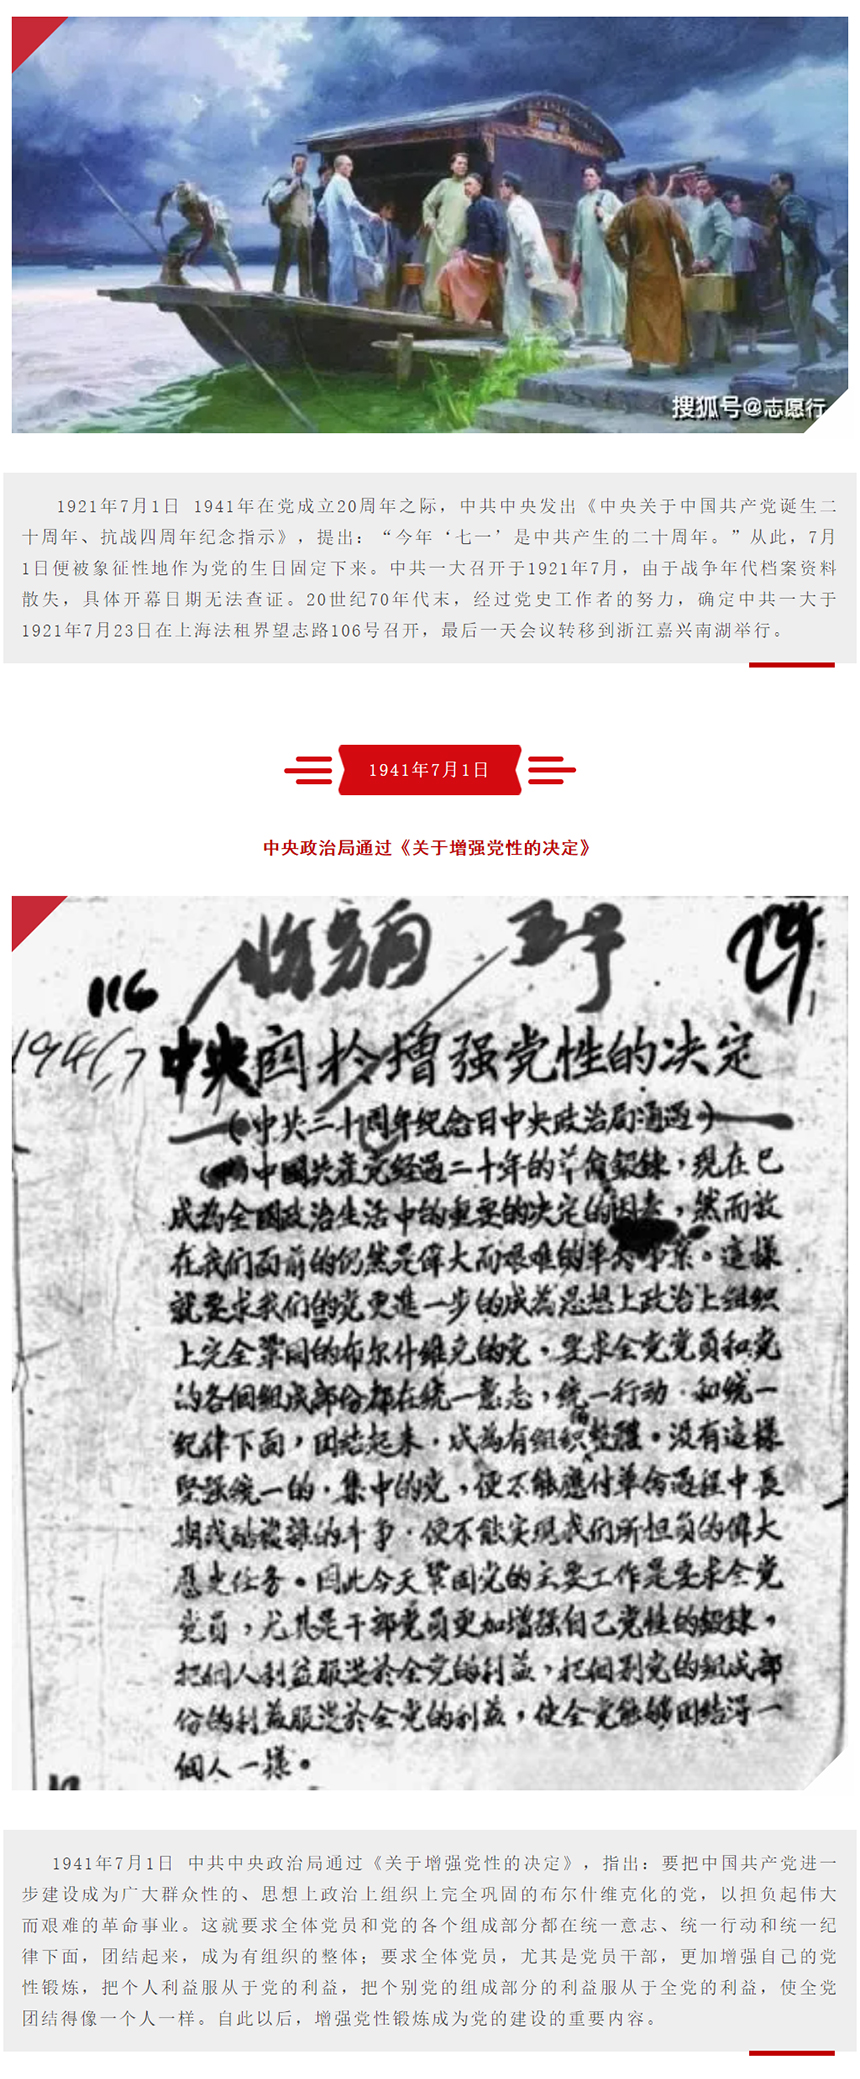 搜狐号@志愿行
1921年7月1日 1941年在党成立20周年之际，中共中央发出《中央关于中国共产党诞生二
十周年、抗战四周年纪念指示》，提出：“今年‘七一’是中共产生的二十周年。”从此，7月
1日便被象征性地作为党的生日固定下来。中共一大召开于1921年7月，由于战争年代档案资料
散失，具体开幕日期无法查证。20世纪70年代末，经过党史工作者的努力，确定中共一大于
1921年7月23日在上海法租界望志路106号召开，最后一天会议转移到浙江嘉兴南湖举行。
1941年7月1日
中央政治局通过《关于增强党性的决定》
29
116
1941,7
中央关於增强党性的决定
（中共二十周年纪念日中央政治局通过）
中國共産党经过二十年的革命鍛鍊，現在已
成為全国政治生活中的重要的决定的因素，然而放
在我们面前的仍然是偉大而艰难的革命事業。這樣
就要求我们的党更進一步的成為思想上政治上组织
上完全鞏固的布尔什維克的党，要求全党党員和党
的各個组成部份都在统一意志，统一行动，和统一
紀律下面，团结起来，成為有组织的整體。没有這樣
坚强统一的，集中的党，便不能應付革命过程中長
期残酷複雜的斗争，便不能实现我们所担負的偉大
歷史任务。因此今天鞏固党的主要工作是要求全党
党員，尤其是干部党員更加增强自己党性的鍛鍊，
把個人利益服從於全党的利益，把個别党的组成部
份的利益服從於全党的利益，使全党能够团结得一
個人一樣。
1941年7月1日 中共中央政治局通过《关于增强党性的决定》，指出：要把中国共产党进一
步建设成为广大群众性的、思想上政治上组织上完全巩固的布尔什维克化的党，以担负起伟大
而艰难的革命事业。这就要求全体党员和党的各个组成部分都在统一意志、统一行动和统一纪
律下面，团结起来，成为有组织的整体；要求全体党员，尤其是党员干部，更加增强自己的党
性锻炼，把个人利益服从于党的利益，把个别党的组成部分的利益服从于全党的利益，使全党
团结得像一个人一样。自此以后，增强党性锻炼成为党的建设的重要内容。